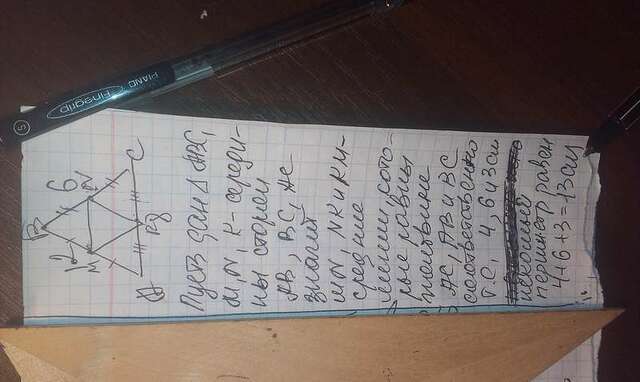 PIANO Finegrip
S
B
12
6
M
N
A
8
C
Пусть дан △ ABC,
M, N, K - середи-
ны сторон
AB, BC, AC
значит
MN, NK и KM-
средние
линии, кото-
рые равны
половине
AC, AB и BC
соответственно
т.е. 4, 6 и 3 см
искомый
периметр равен
4+6+3=13 см